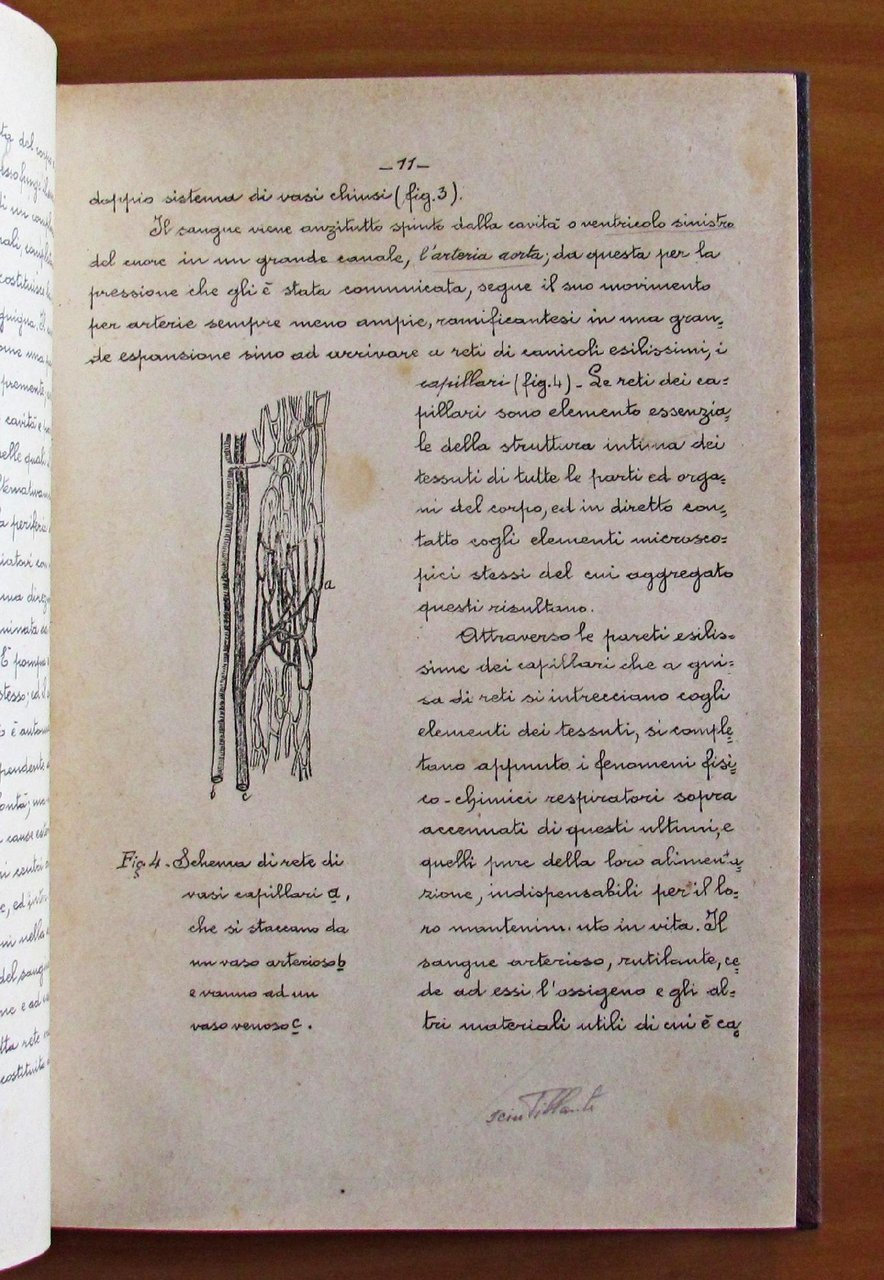 - 11 -
doppio sistema di vasi chiusi (fig. 3).
Il sangue viene anzitutto spinto dalla cavità o ventricolo sinistro
del cuore in un grande canale, l'arteria aorta; da questa per la
pressione che gli è stata comunicata, segue il suo movimento
per arterie sempre meno ampie, ramificantesi in una gran-
de espansione sino ad arrivare a reti di canicoli esilissimi, i
capillari (fig. 4) - Le reti dei ca-
pillari sono elemento essenzia-
le della struttura intima dei
tessuti di tutte le parti ed orga-
ni del corpo, ed in diretto con-
tatto cogli elementi microsco-
pici stessi del cui aggregato
questi risultano.
Attraverso le pareti esilis-
sime dei capillari che a gui-
sa di reti si intrecciano cogli
elementi dei tessuti, si comple-
tano appunto i fenomeni fisi-
co-chimici respiratori sopra
accennati di questi ultimi, e
quelli pure della loro alimenta-
zione, indispensabili per il lo-
ro mantenim nto in vita. Il
sangue arterioso, rutilante, ce-
de ad essi l'ossigeno e gli al-
tri materiali utili di cui è ca-
a
b
c
Fig. 4 - Schema di rete di
vasi capillari a,
che si staccano da
un vaso arterioso b
e vanno ad un
vaso venoso c.
scintillanti